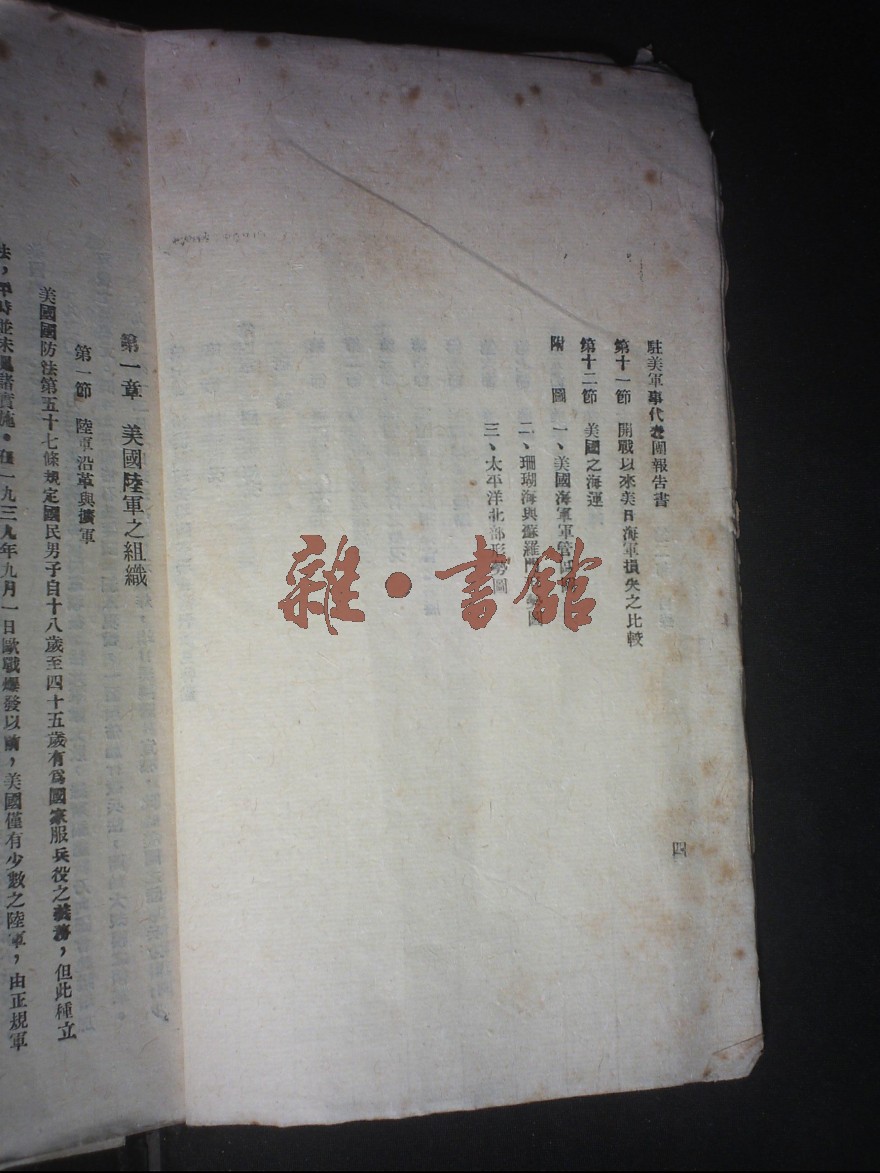 駐美軍事代表團報告書
第十一節　開戰以來美日海軍損失之比較
第十二節　美國之海運
附　圖　一、美國海軍軍管區
二、珊瑚海與蘇羅門
三、太平洋北部形勢圖
四
雜・書館
第一章　美國陸軍之組織
第一節　陸軍沿革與擴軍
美國國防法第五十七條規定國民男子自十八歲至四十五歲有爲國家服兵役之義務，但此種立
法，平時並未見諸實施。在一九三九年九月一日歐戰爆發以前，美國僅有少數之陸軍，由正規軍